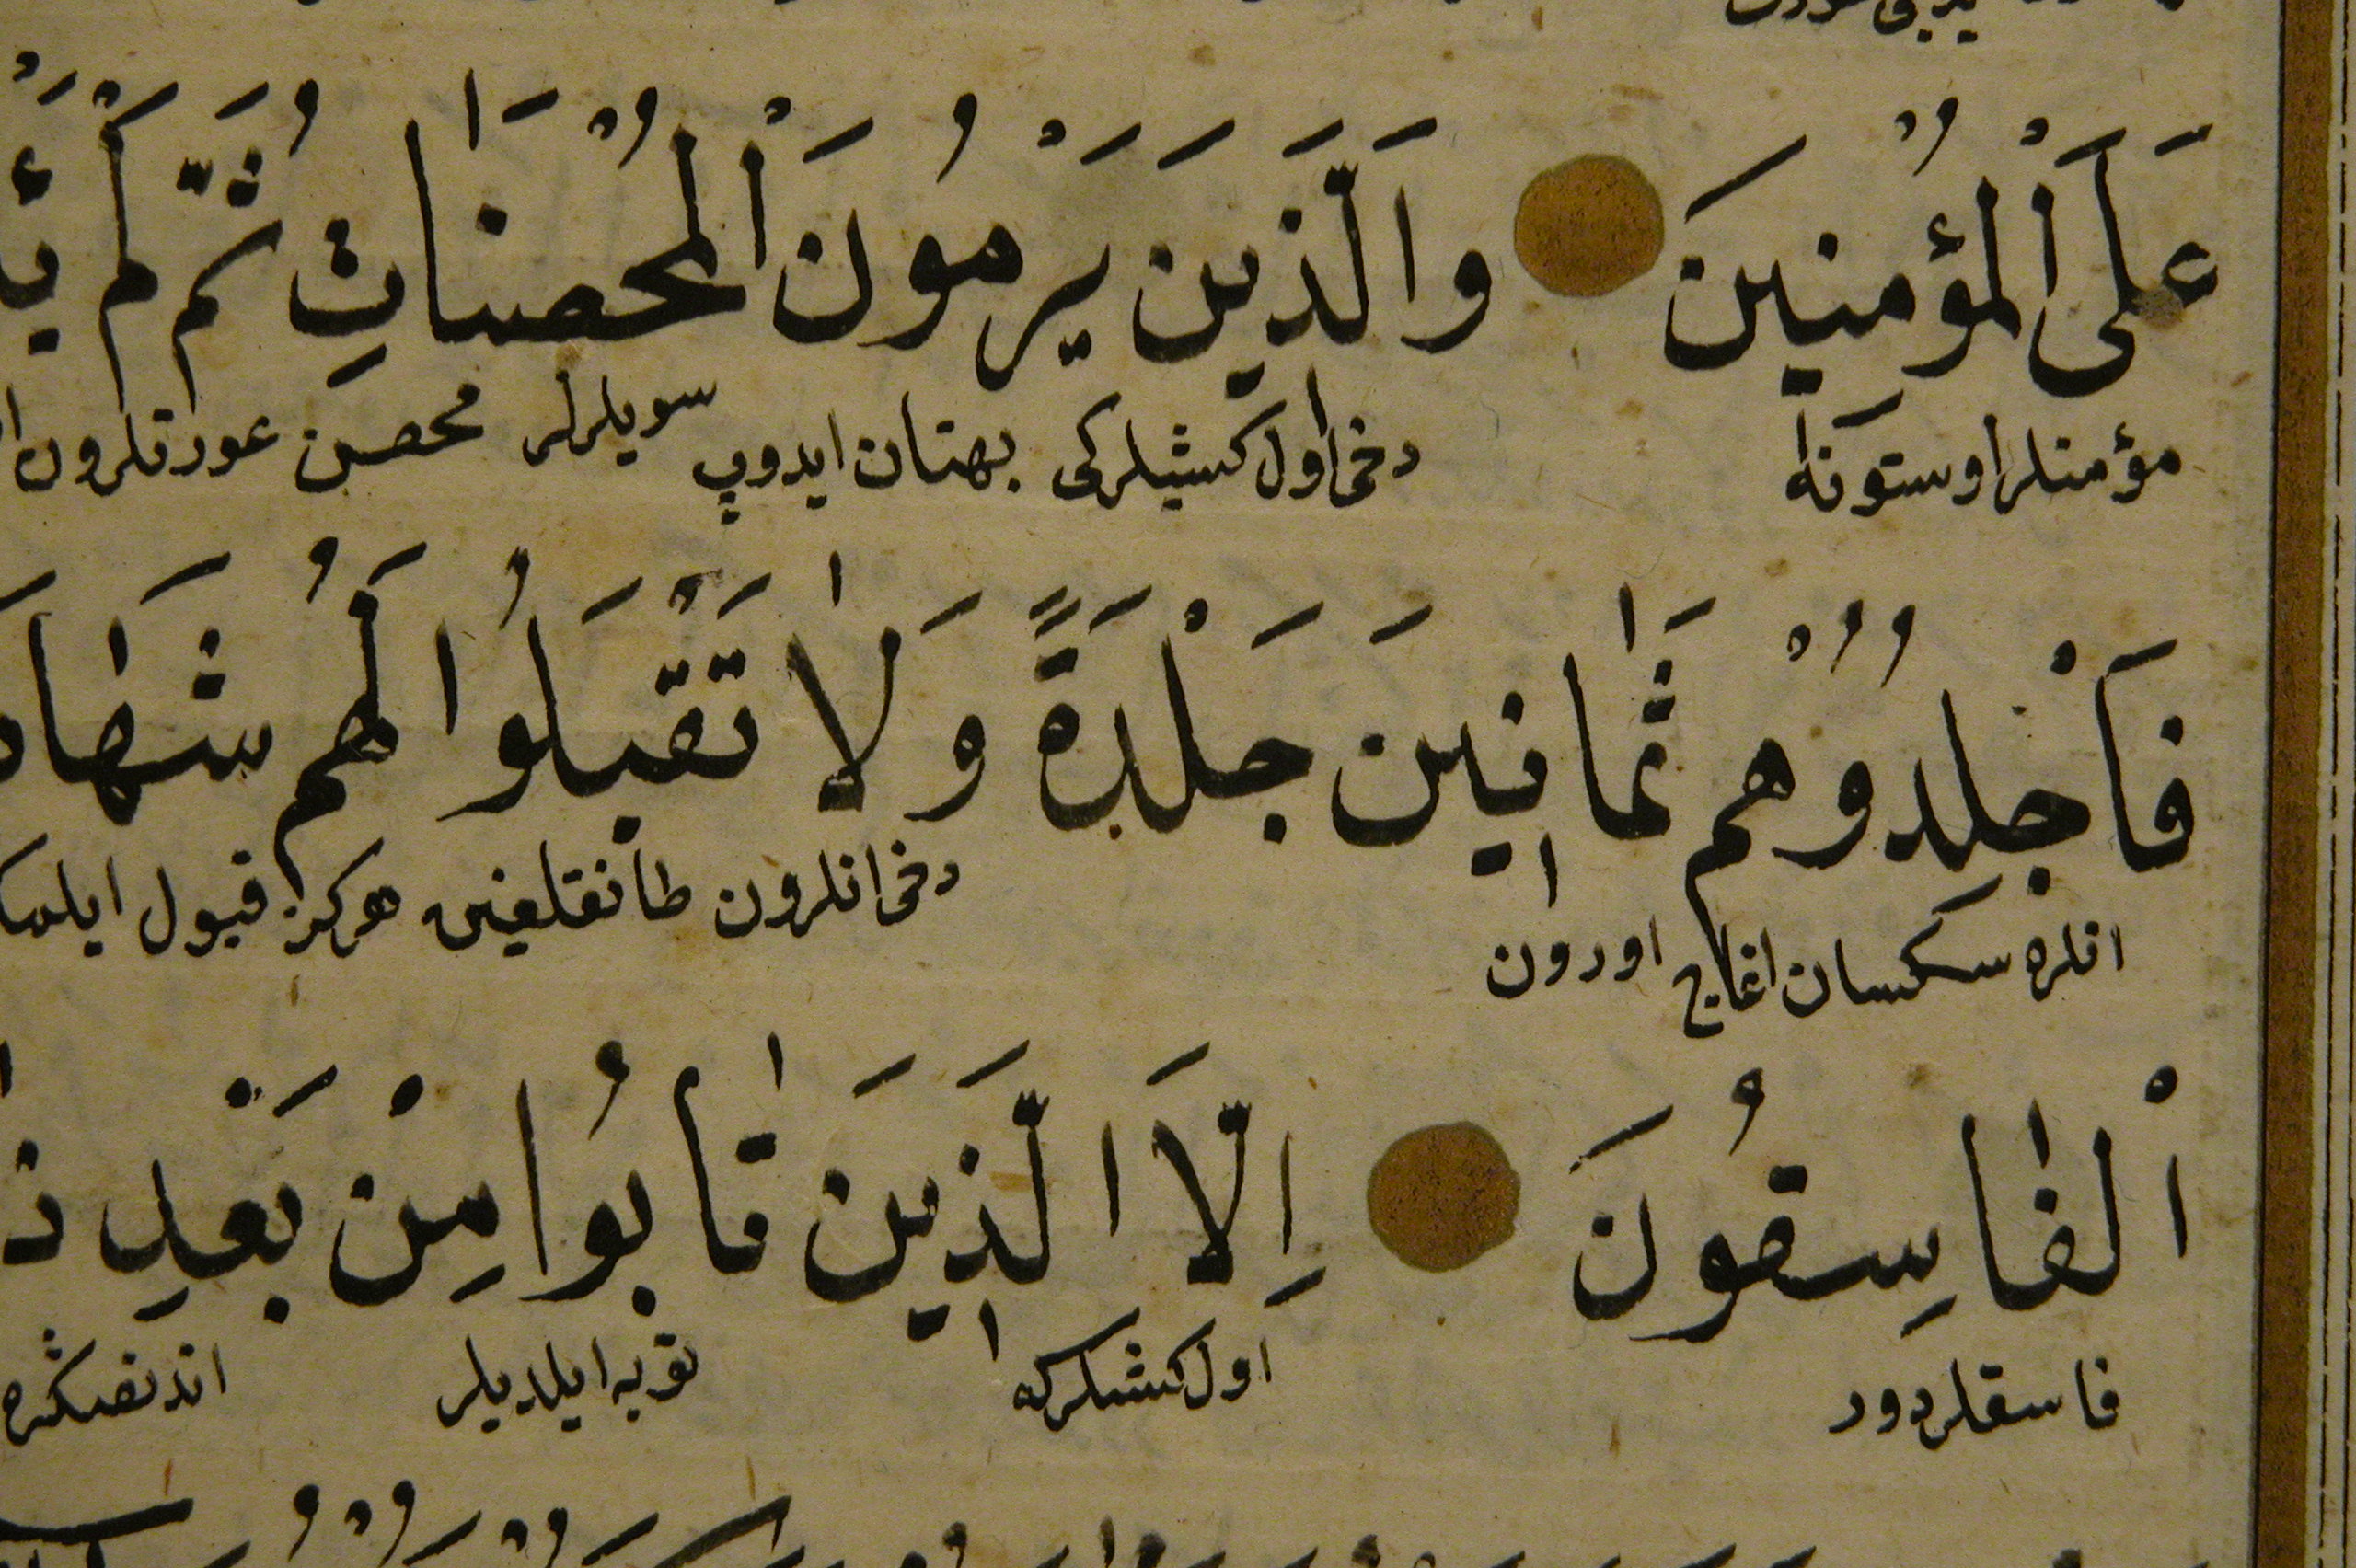 عَلَى اَلْمُؤْمِنِينَ وَالَّذَينَ يَرْمُونَ اَلْمُحْصَنَاتِ ثُمَّ لَمْ
مؤمنلر اوستونه دخی اول کشیلرکی بهتان ایدوپ سویلرلر محصن عورتلرون
فَاَجْلِدُوُهُم ثَمَانِينَ جَلْدَةً وَلَا تَقْبَلُوا لَهُم
انلره سکسان اغاج اورون دخی انلرون طانقلغین هرکز قبول
اْلفَاسِقُونَ اِلَّا الَّذَينَ تَابُوا مِنْ بَعْدِ
فاسقلردور اول کشلرکه توبه ایلدیلر اندنصکره